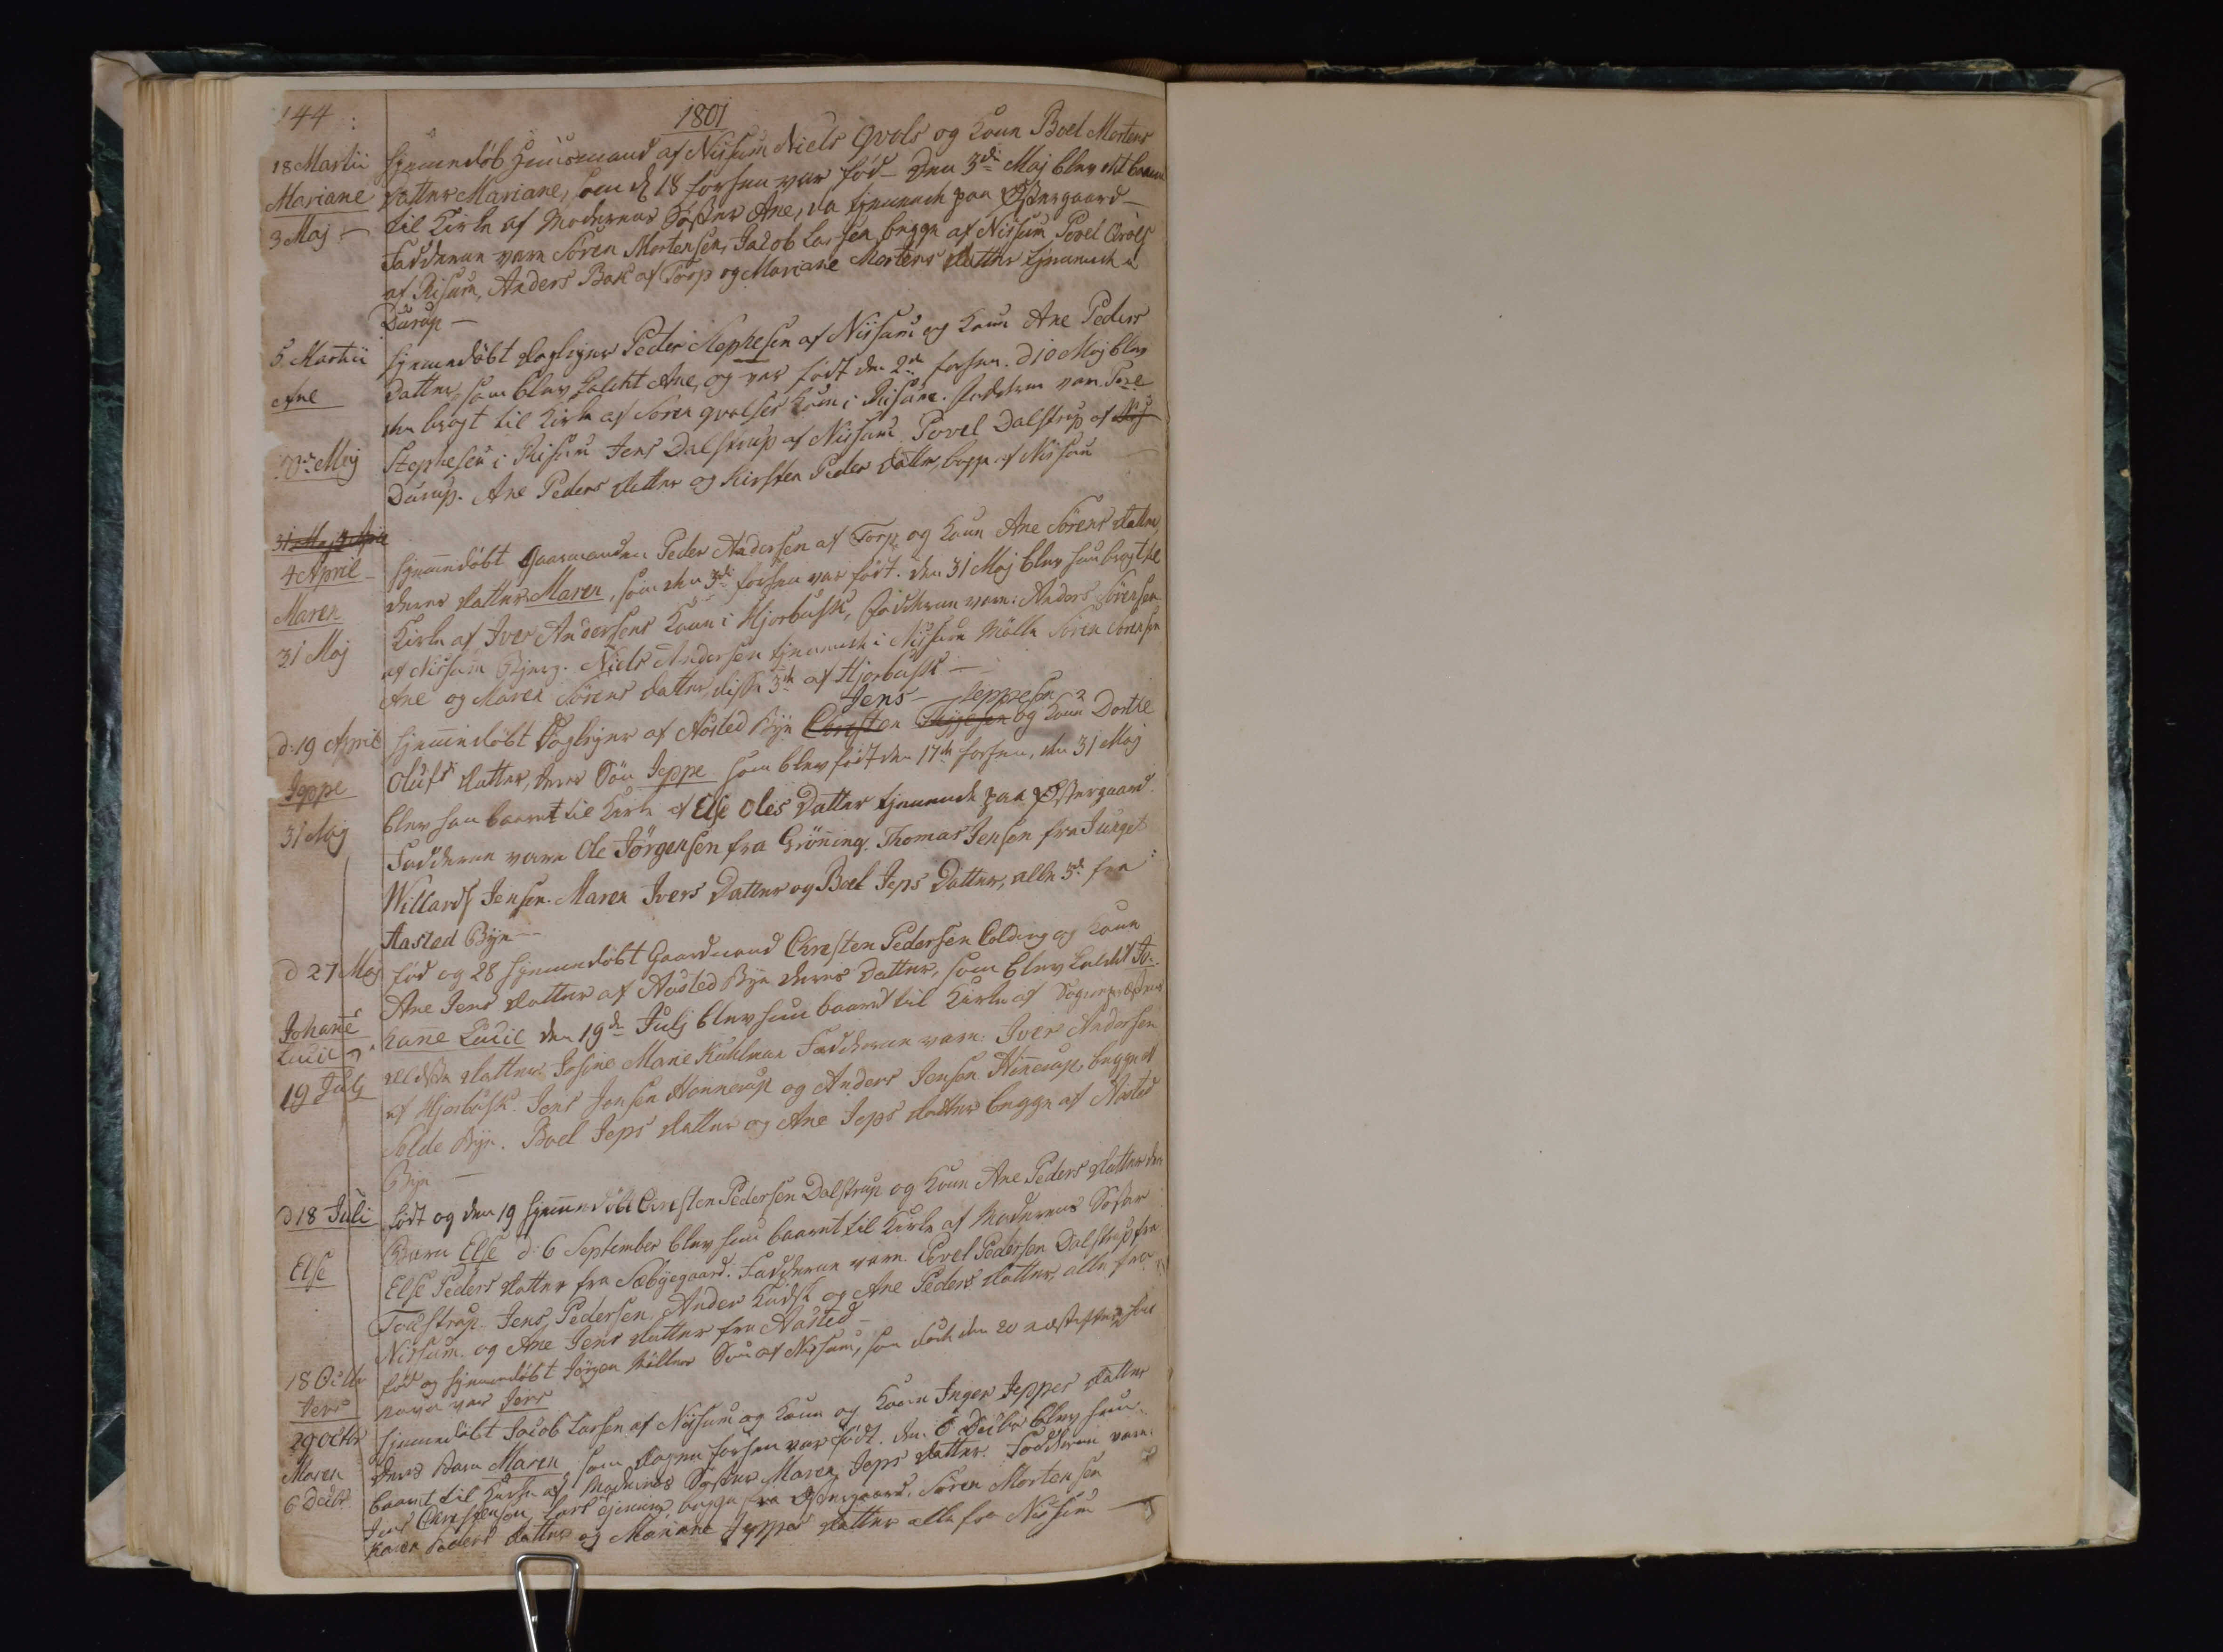 144 :
1801
18 Martii
Mariane
3 Maj
hjemmedøb Huusmand af Nissum Niels Qvols og Konn Boel Mortens
datter Mariane, som d 18 forhen var fød – Den 3die Maj blev det baaren
til Kirke af Moderens Søster Ane, da tjenende paa Østergaard –
Fadderne vare Sören Mortensen, Jacob Larsen begge af Nissum Povel Qvols
af Risum, Anders Bak af Torp og Mariane Mortens datter tjenende i
Durup –
5 Martii
Ane
Maj
hjemmedøbt dagleyer Peder Stephesen af Nissum og Konn Ane Peders
datter, som blev kaldt Ane, og var født den 2den forhen. d 10 Maj blev
den bragt til Kirke af Sören qvolses Kone i Risum. Fadderne var Pove
Stephesen i Risum Jens Dalstrup af Nissum Povel Dalstrup af
Durup. Ane Peders datter og Kirsten Peder datter, begge af Nissum
4 April
Maren
31 Maj
hjemmedøbt Gaarmanden Peder Andersen af Torp og Konn Ane Sörens datter,
deres datter Maren, som den 3die forhen var født. den 31 Maj blev hun bragt til
Kirke af Iver Andersens Konn i Hjorbusk, Fadderne vare: Anders Sörensen
af Nissum Bjerg. Niels Andersen tjenende i Nissum Mølle Sören Sörensen
Ane og Maren Sörens datter, disse 3de af Hjorbusk –
d: 19 April
Jeppe
31 Maj
Jens – Jeppesen
hjemmedøbt Dagleyer af Aasted Bye Christen Thygesen og Konn Dorthe
Olufs datter, deres Søn Jeppe som blev født den 17de forhen, den 31 Maj
blev han baaret til Kirke af Else Oles Datter tjenende paa Østergaard.
Fadderne vare Ole Jörgensen fra Grönning. Thomas Jensen fra Junget
Willards Jensen. Maren Ivers Datter og Boel Jeps Datter, alle 3de fra
Aasted Bye –
d 27 Maj
Johanne
Lucie
19 Julj
fød og 28 hjemmedøbt Gaardmand Christen Pedersen Colding og Konn
Ane Jens datter af Aasted Bye deres datter, som blev kaldet Jo-
hanne Lucie den 19de Julj blev hun baaret til Kirke af Sognepræstens
ældste datter Josine Marie Kuhlman Fadderne vare: Iver Andersen
af Hjorbusk. Jens Jensen Honnerup og Anders Jensen Hinnerup, begge af
Salde Bye. Boel Jeps datter og Ane Jeps datter begge af Aasted
Bye –
d 18 Juli
Else
født og den 19 hjemmedøbt Christen Pedersen Dalstrup og Konn Ane Peders datter deres
Barn Else d: 6 September blev hun baaret til Kirke af Moderens Søster
Else Peders datter fra Sæbyegaard. Fadderne vare. Povel Pedersen Dalstrup fra
Jens Pedersen, Anders Kudsk og Ane Peders datter, alle fra
Nissum. og Ane Jens datter fra Aasted –
18 Octbr
Jens
fød og hjemmedøbt Jörgen Møllers Søn af Nissum, som døde den 20 næstefter hans
navn var Jens
29 Octbr
Maren
6 Decbr
hjemmedøbt Jacob Larsen af Nissum og Konn og Konn Inger Jeppes datter
deres Barn Maren som dagen forhen var født. den 6 Decbr blev hun
baaret til Kirke af Moderens Søster Maren Jeps datter. Fadderne vare:
Jens Christensen, Lars begge fra Østergaard. Sören Mortensen
Karen Peders datter og Mariane Jeppes datter alle fra Nissum –